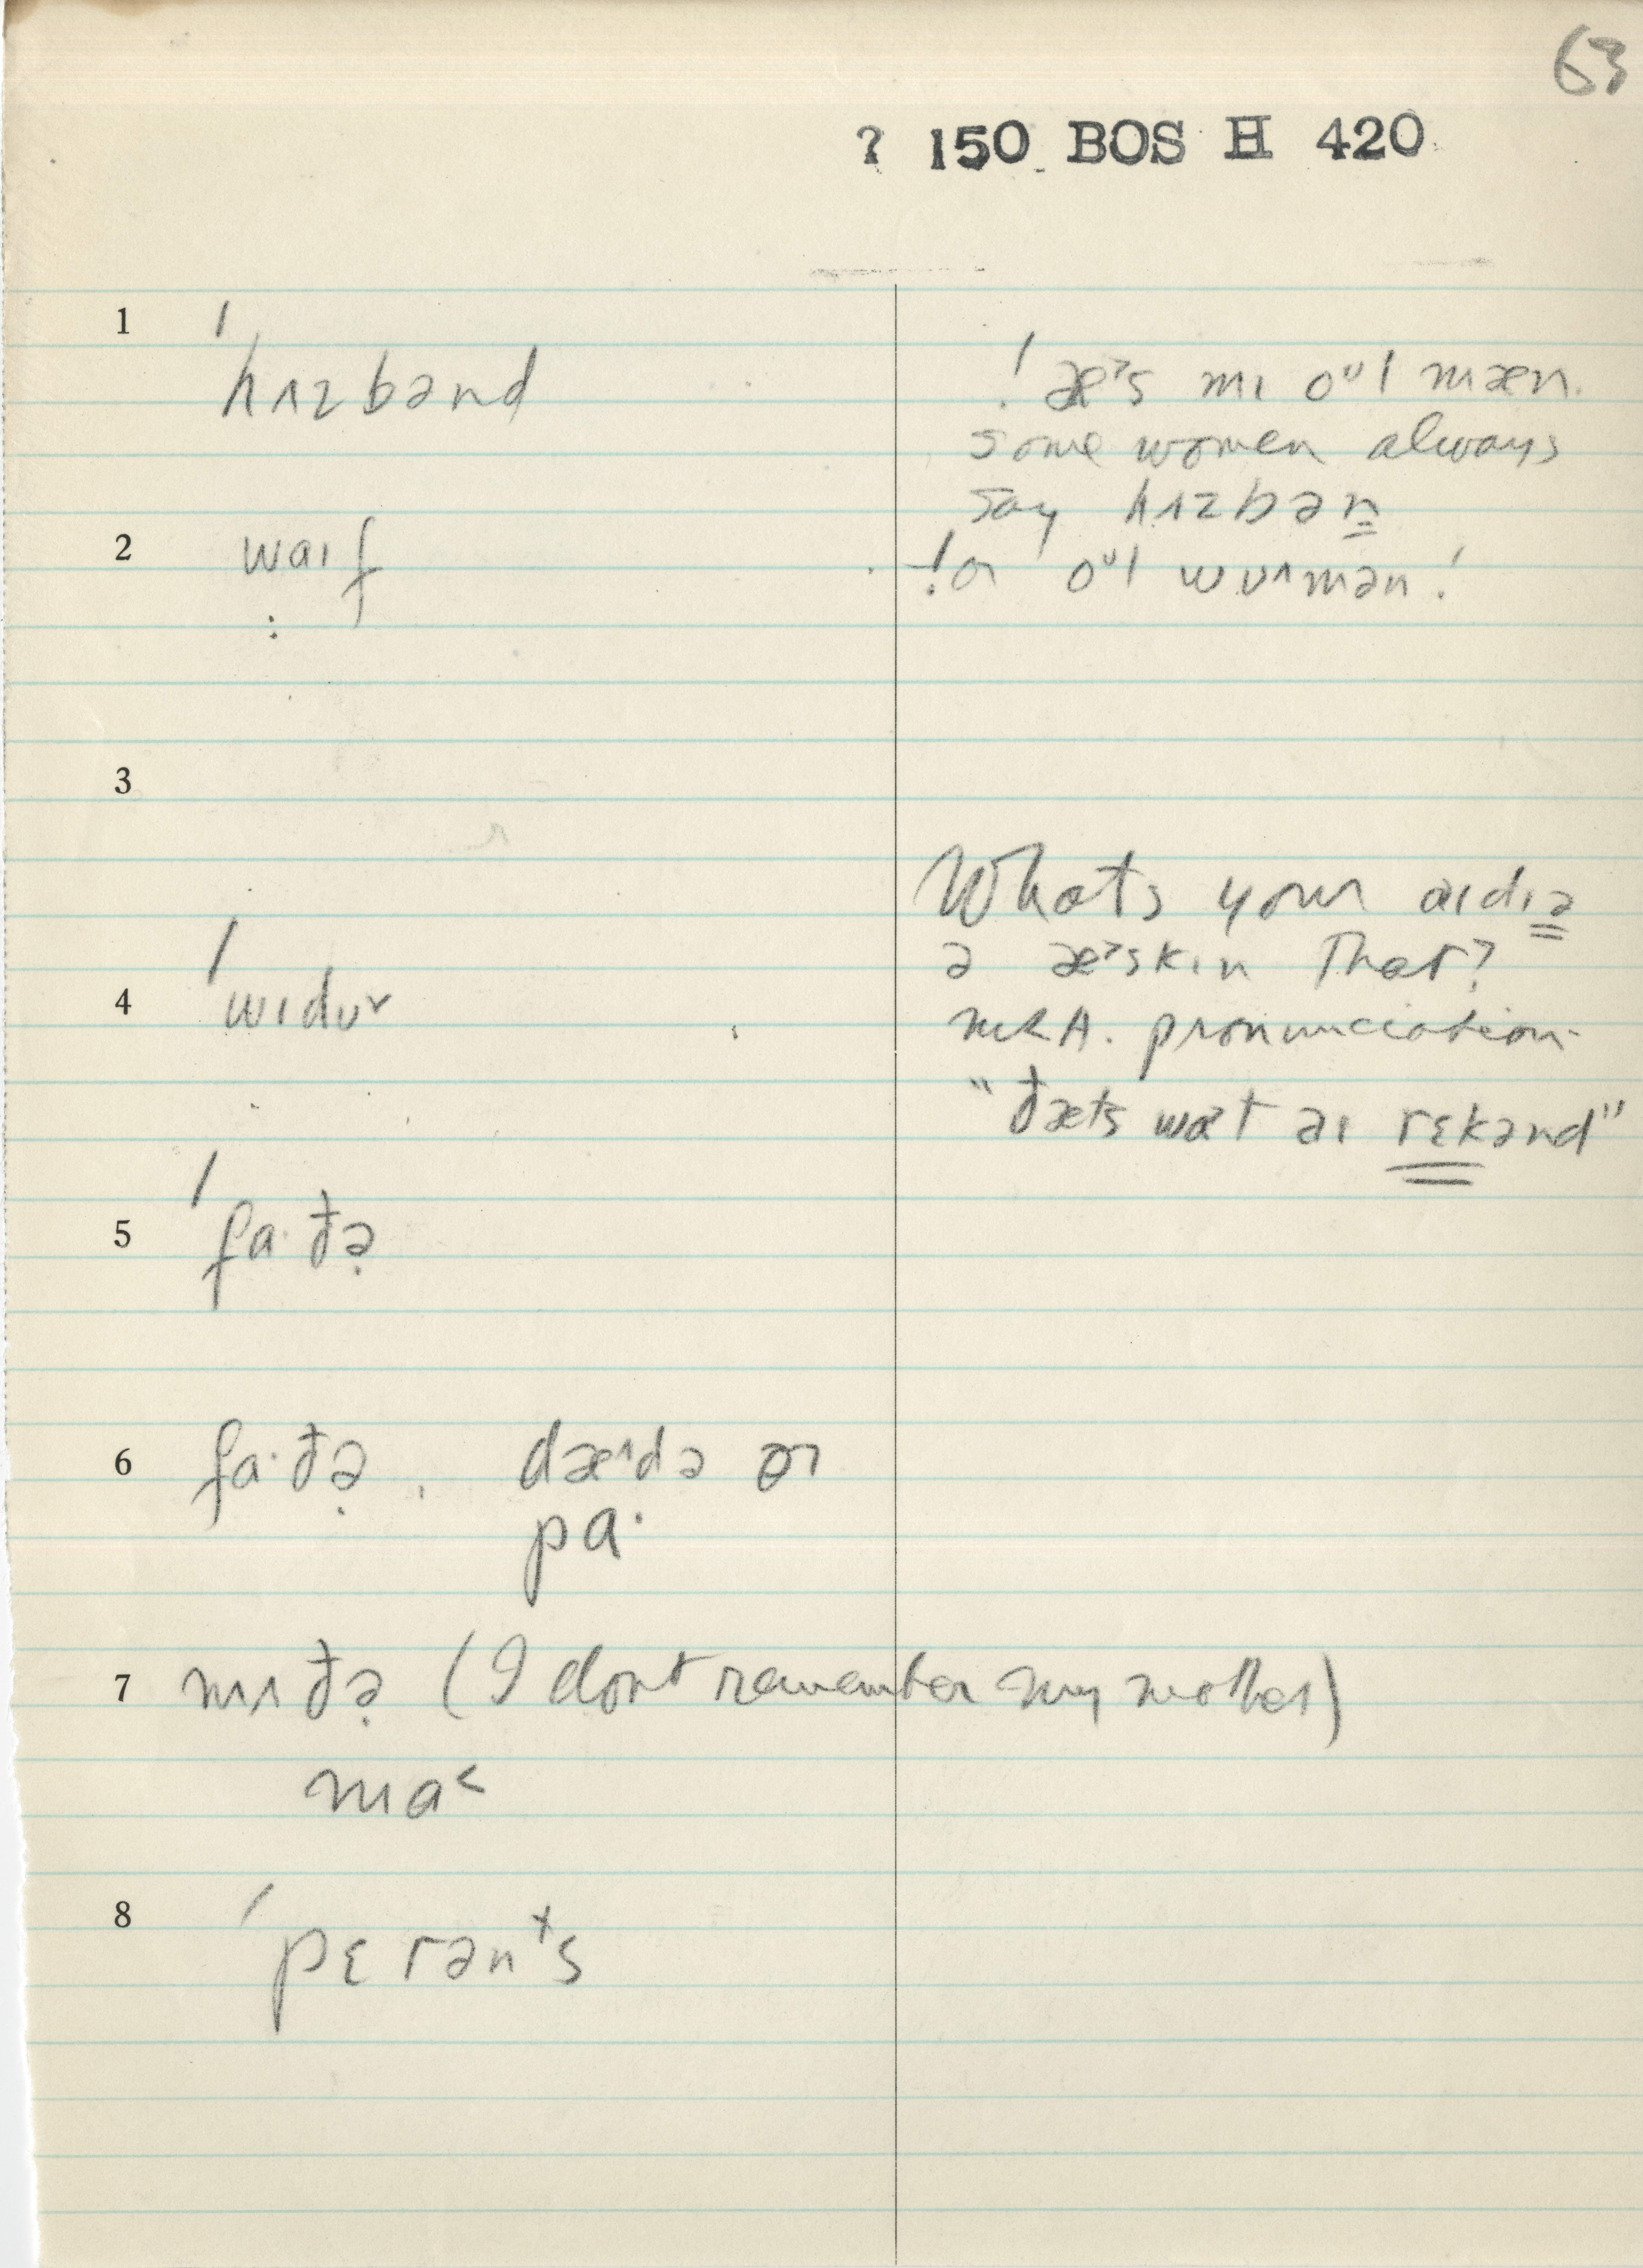 63
? 150 BOS H 420
1 ˈhʌzbənd
! æˀs mɪ oᵁl mæn.
some women always
say hʌzbən
2 waɪf
! or oᵁl wʊʌmən !
3
What's your aɪdɪə
ə æˀskɪn That?
4 ˈwɪdʊ˅
MRA. pronunciation.
"ðæts wɑt aɪ rɛkənd"
5 ˈfaˑðə̣
6 faˑðə̣, dæ^də or
paˑ
7 mʌðə̣ (I dont remember my mother)
ma˂
8 ˈpɛrənᵗs